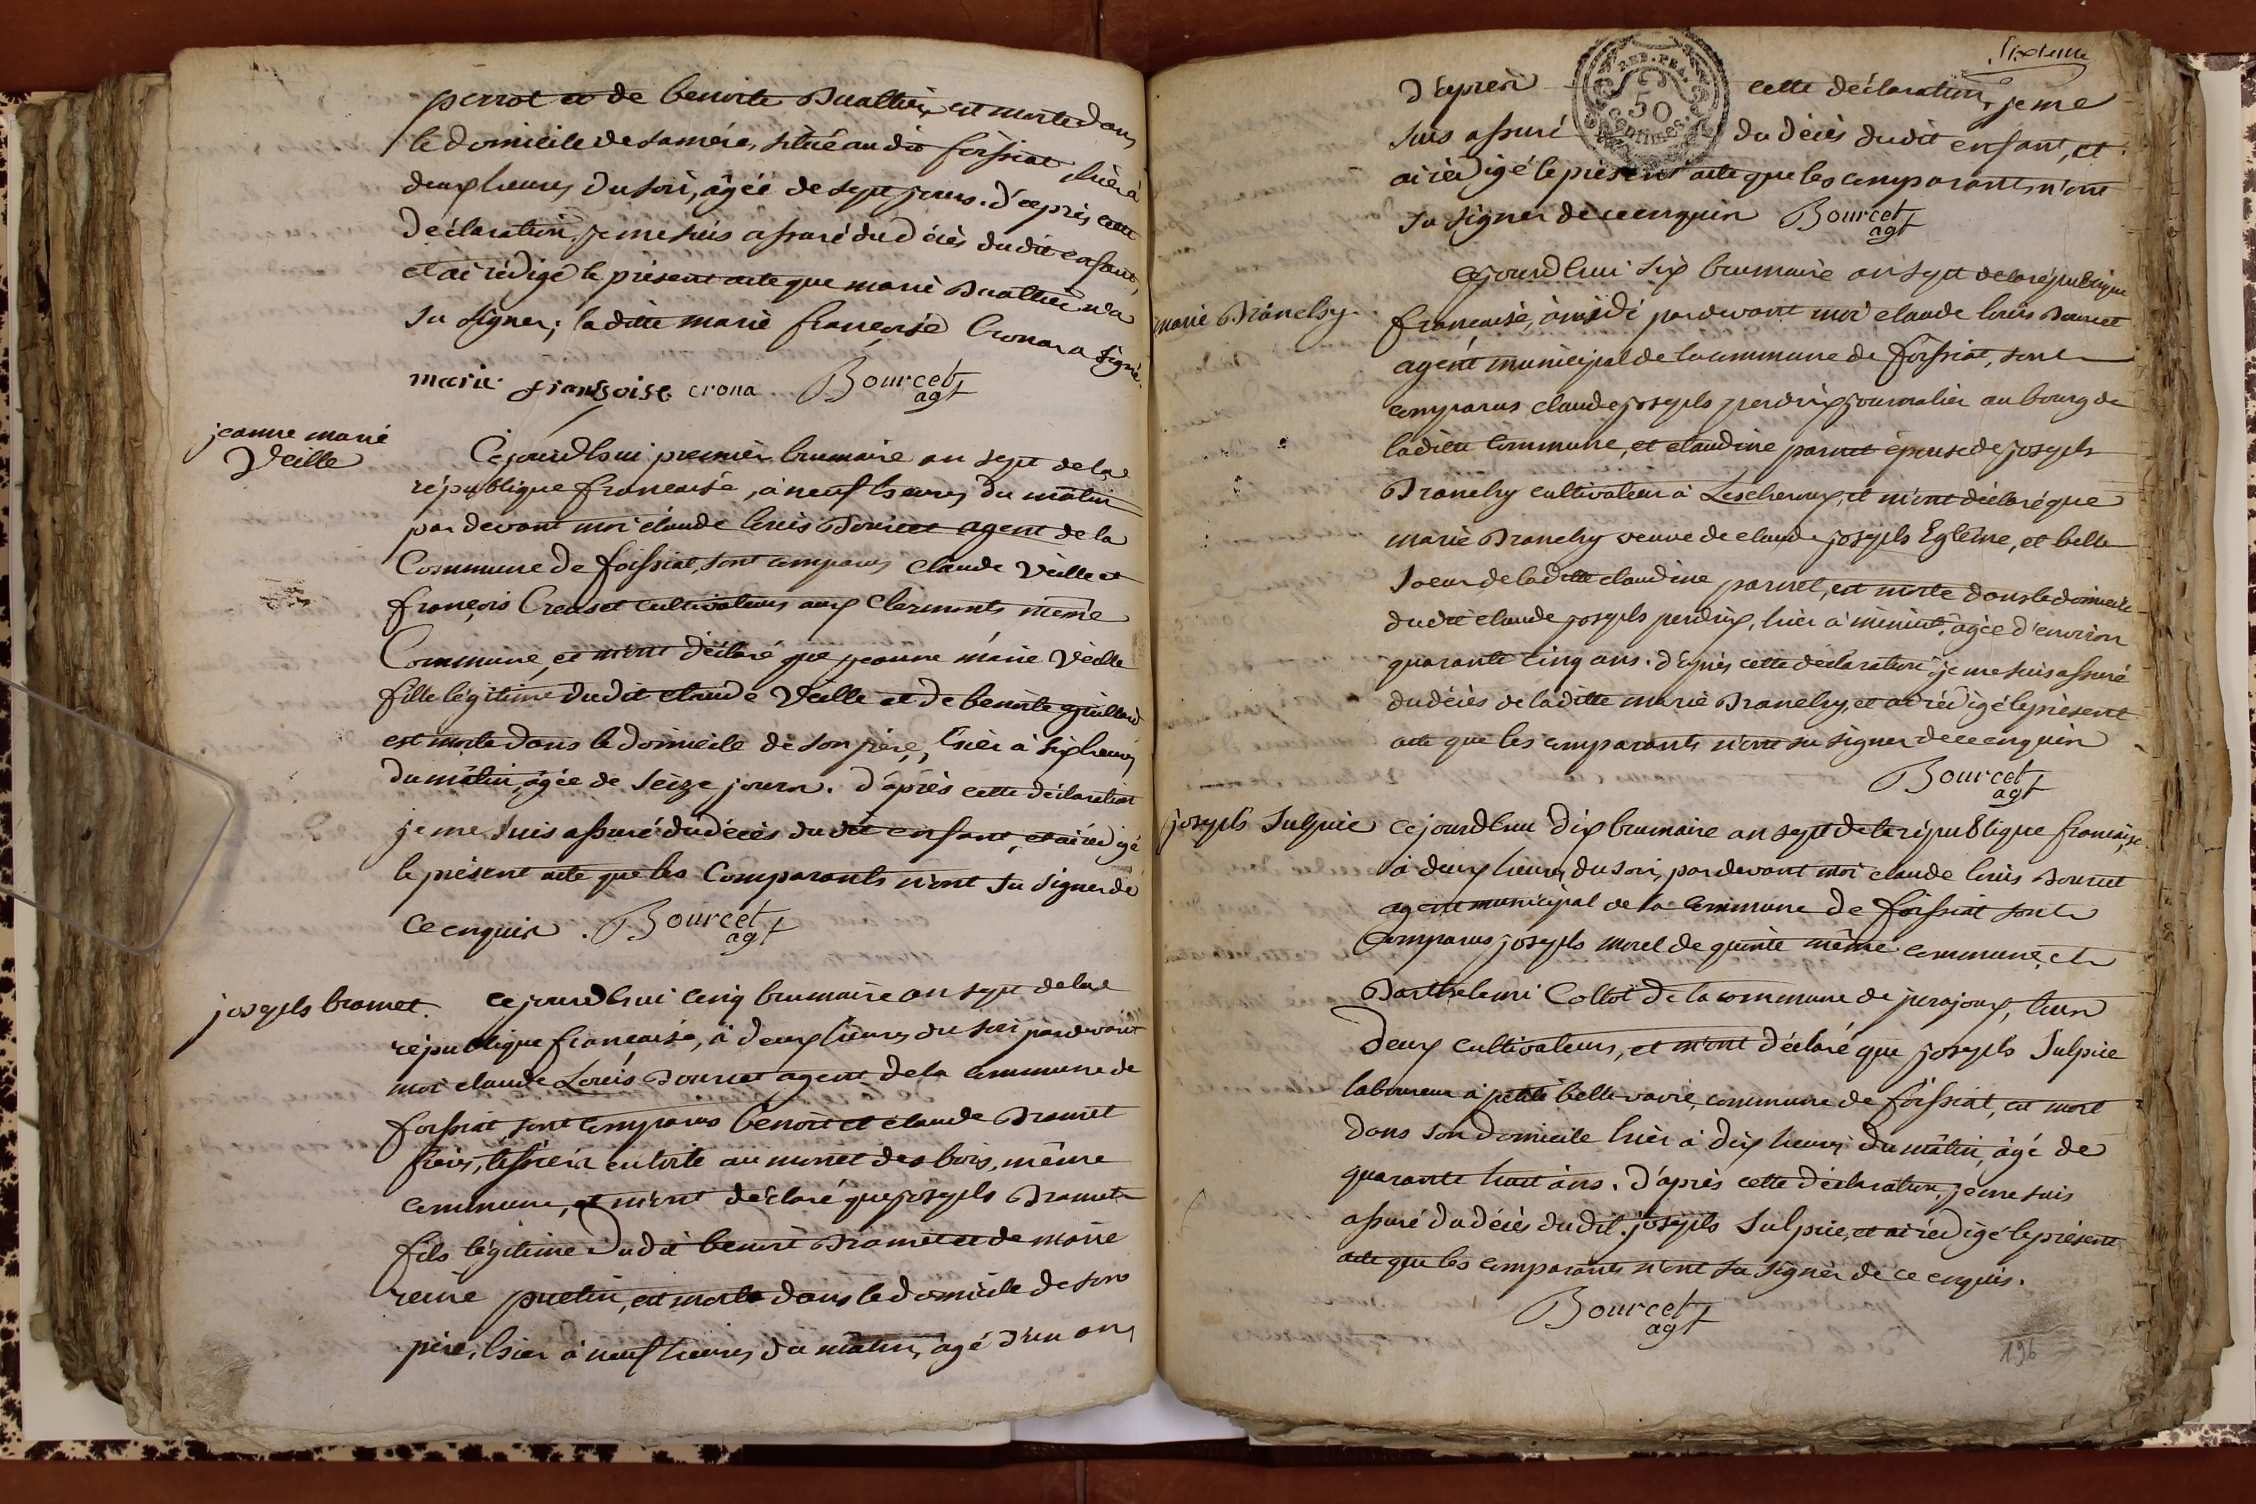 perrot et de benoite Buathier est morte dans
le domicile de sa mère, situé au dit foissiat, hier à
deux heures du soir, âgée de sept jours. d'après cette
déclaration, je me suis assuré du décès du dit enfant,
et ai rédigé le présent acte que marie Buathier n'a
su signer; la ditte marie françoise Crona a signé.
marie françoise crona Bourcet
agt
jeanne marie
Veille
Cejourdhui premier brumaire an sept de la
république francaise, à neuf heures du mâtin
par devant moi claude louis Bourcet agent de la
Commune de foissiat, sont comparus Claude Veille et
françois Creuset cultivateurs aux Clermonts même
Commune, et m'ont déclaré que jeanne marie Veille
fille légitime dudit claude Veille et de benoite guillard
est morte dans le domicile de son père, hier à six heures
du mâtin, âgée de seize jours. d'après cette déclaration
je me suis assuré du décès du dit enfant, et ai rédigé
le présent acte que les Comparants n'ont su signer de
ce enquis. Bourcet
agt
joseph bramet.
cejourdhui cinq brumaire an sept de la
république francaise, à deux heures du soir par devant
moi claude Louis Bourcet agent de la commune de
foissiat sont comparus benoit et claude Bramet
frères, tissiers en toile au munet des bois, même
commune, et m'ont déclaré que joseph Bramet
fils légitime dudit benoit Bramet et de marie
reine putin, est mort dans le domicile de son
père, hier à neuf heures du mâtin, âgé d'un an,
sixieme
d'après cette déclaration, je me
REP. FRA.
50
centimes
suis assuré du décès dudit enfant, et
ai rédigé le présent acte que les comparants n'ont
su signer de ce enquis Bourcet
agt
marie Branchy.
cejourdhui six brumaire an sept de la république
francaise, à midi par devant moi claude louis Bourcet
agent municipal de la commune de foissiat, sont
comparus claude joseph perdrix journalier au bourg de
la dite commune, et claudine parnet épouse de joseph
Branchy cultivateur à Lescheroux, et m'ont déclaré que
marie Branchy veuve de claude joseph Egleme, et belle
soeur de la ditte claudine parnet, est morte dans le domicile
du dit claude joseph perdrix, hier à minuit, âgée d'environ
quarante cinq ans. d'après cette déclaration je me suis assuré
du décès de la ditte marie Branchy, et ai rédigé le présent
acte que les comparants n'ont su signer de ce enquis
Bourcet
agt
joseph Sulpice
cejourdhui dix brumaire an sept de la république francaise,
à deux heures du soir, par devant moi claude louis Bourcet
agent municipal de la commune de foissiat sont
Comparus joseph morel de quinte même commune, et
Barthelemi Collot de la commune de jerajoux, tous
deux cultivateurs, et m'ont déclaré que joseph Sulpice
laboureur à petite bellevavre, commune de foissiat, est mort
dans son domicile hier à dix heures du mâtin, âgé de
quarante huit ans. d'après cette déclaration, je me suis
assuré du décès dudit joseph Sulpice, et ai rédigé le présent
acte que les comparants n'ont su signer de ce enquis.
Bourcet
agt
196